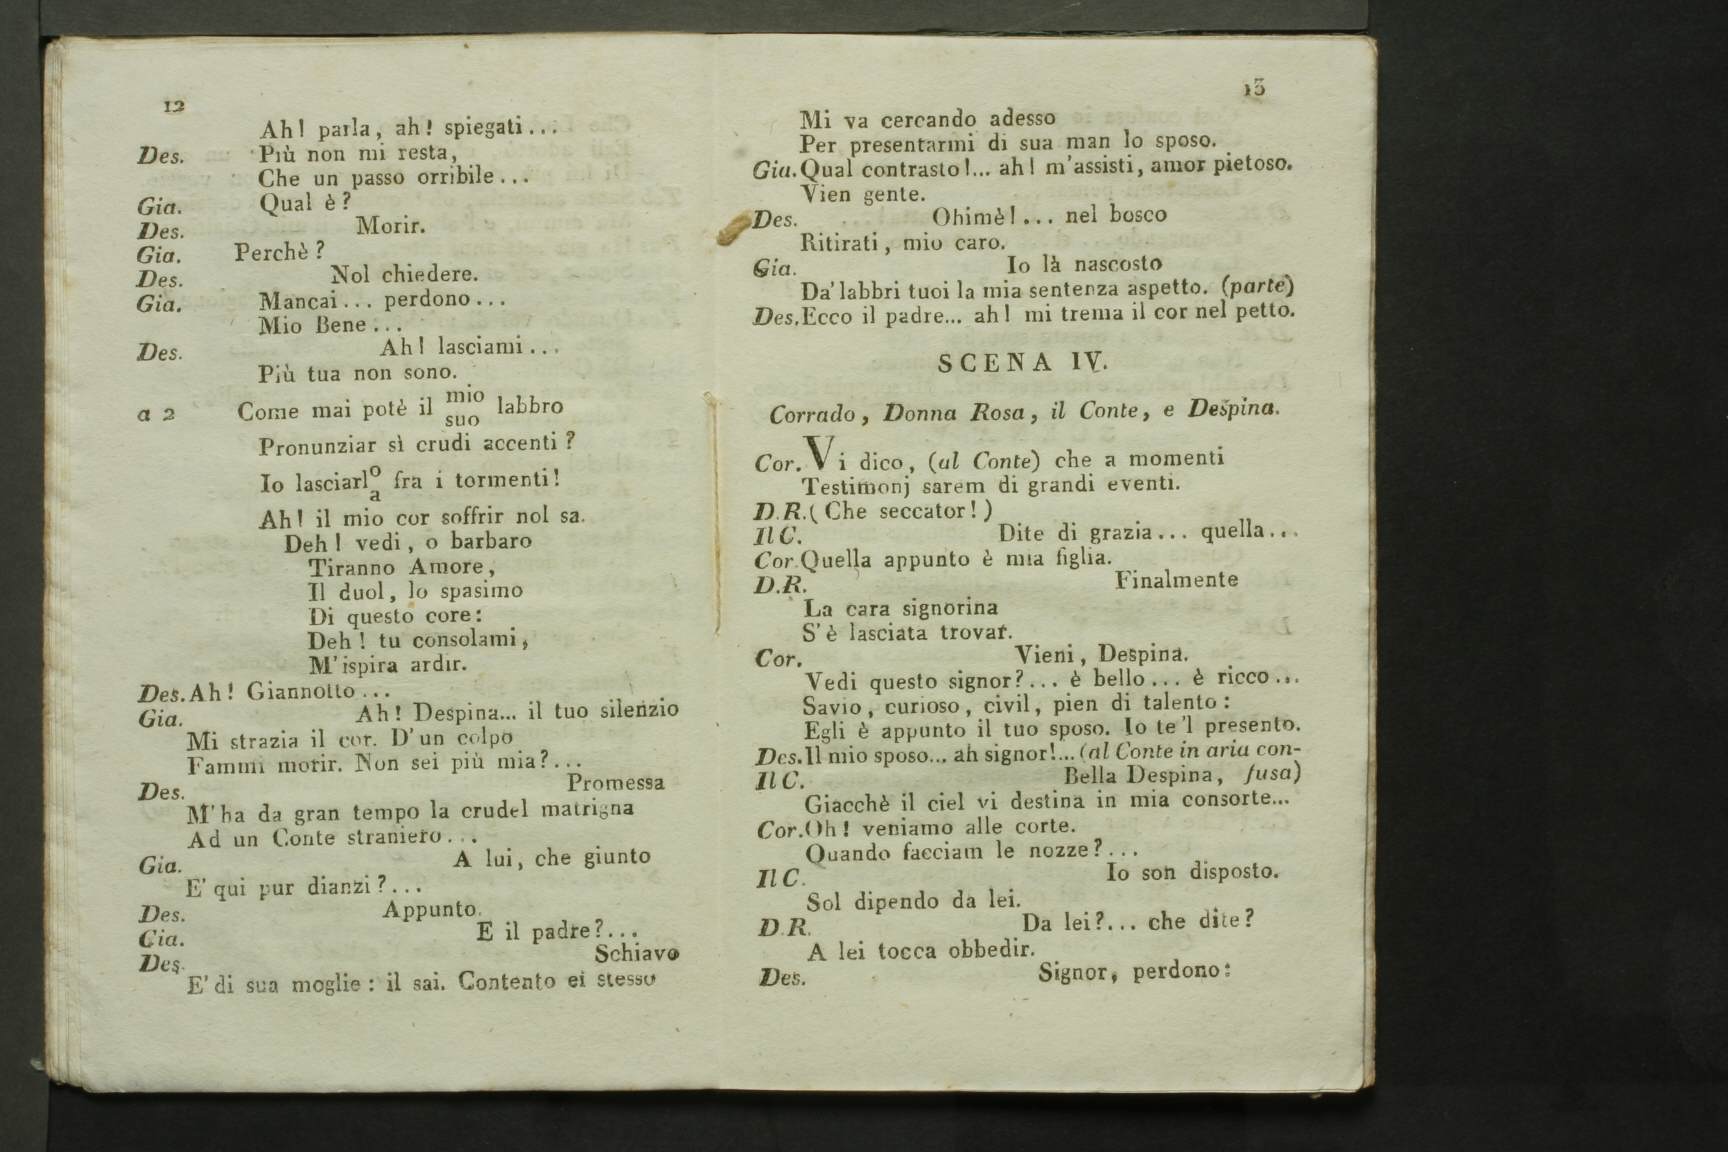 12
Ah! parla, ah! spiegati...
Des. Più non mi resta,
Che un passo orribile...
Gia. Qual è?
Des. Morir.
Gia. Perchè?
Des. Nol chiedere.
Gia. Mancai... perdono...
Mio Bene...
Des. Ah! lasciami...
Più tua non sono.
a 2 Come mai potè il mio labbro
suo
Pronunziar sì crudi accenti?
Io lasciarlo fra i tormenti!
a
Ah! il mio cor soffrir nol sa.
Deh! vedi, o barbaro
Tiranno Amore,
Il duol, lo spasimo
Di questo core:
Deh! tu consolami,
M'ispira ardir.
Des. Ah! Giannotto...
Gia. Ah! Despina... il tuo silenzio
Mi strazia il cor. D'un colpo
Fammi morir. Non sei più mia?...
Des. Promessa
M'ha da gran tempo la crudel matrigna
Ad un Conte straniero...
Gia. A lui, che giunto
E' qui pur dianzi?...
Des. Appunto.
Gia. E il padre?...
Des. Schiavo
E' di sua moglie: il sai. Contento ei stesso
13
Mi va cercando adesso
Per presentarmi di sua man lo sposo.
Gia. Qual contrasto!... ah! m'assisti, amor pietoso.
Vien gente.
Des. Ohimè!... nel bosco
Ritirati, mio caro.
Gia. Io là nascosto
Da' labbri tuoi la mia sentenza aspetto. (parte)
Des. Ecco il padre... ah! mi trema il cor nel petto.
SCENA IV.
Corrado, Donna Rosa, il Conte, e Despina.
Cor. Vi dico, (al Conte) che a momenti
Testimonj sarem di grandi eventi.
D.R. (Che seccator!)
Il C. Dite di grazia... quella...
Cor. Quella appunto è mia figlia.
D.R. Finalmente
La cara signorina
S'è lasciata trovar.
Cor. Vieni, Despina.
Vedi questo signor?... è bello... è ricco...
Savio, curioso, civil, pien di talento:
Egli è appunto il tuo sposo. Io te 'l presento.
Des. Il mio sposo... ah signor!... (al Conte in aria con-
Il C. Bella Despina, fusa)
Giacchè il ciel vi destina in mia consorte...
Cor. Oh! veniamo alle corte.
Quando facciam le nozze?...
Il C. Io son disposto.
Sol dipendo da lei.
D.R. Da lei?... che dite?
A lei tocca obbedir.
Des. Signor, perdono: